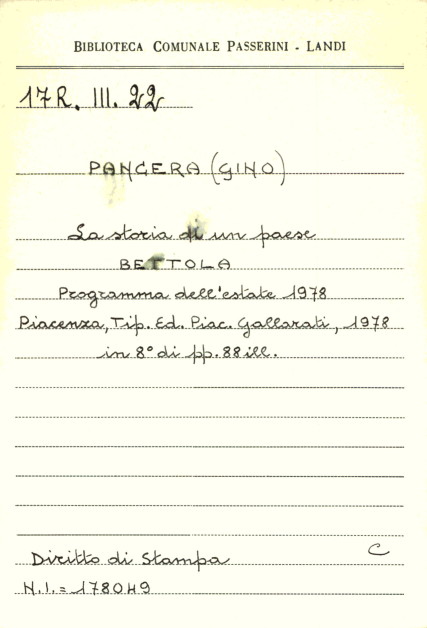 BIBLIOTECA COMUNALE PASSERINI - LANDI
17R. III. 22
PANCERA (GINO)
La storia di un paese
BETTOLA
Programma dell'estate 1978
Piacenza, Tip. Ed. Piac. Gallarati, 1978
in 8° di pp. 88 ill.
C
Diritto di Stampa
N.I. = 178049